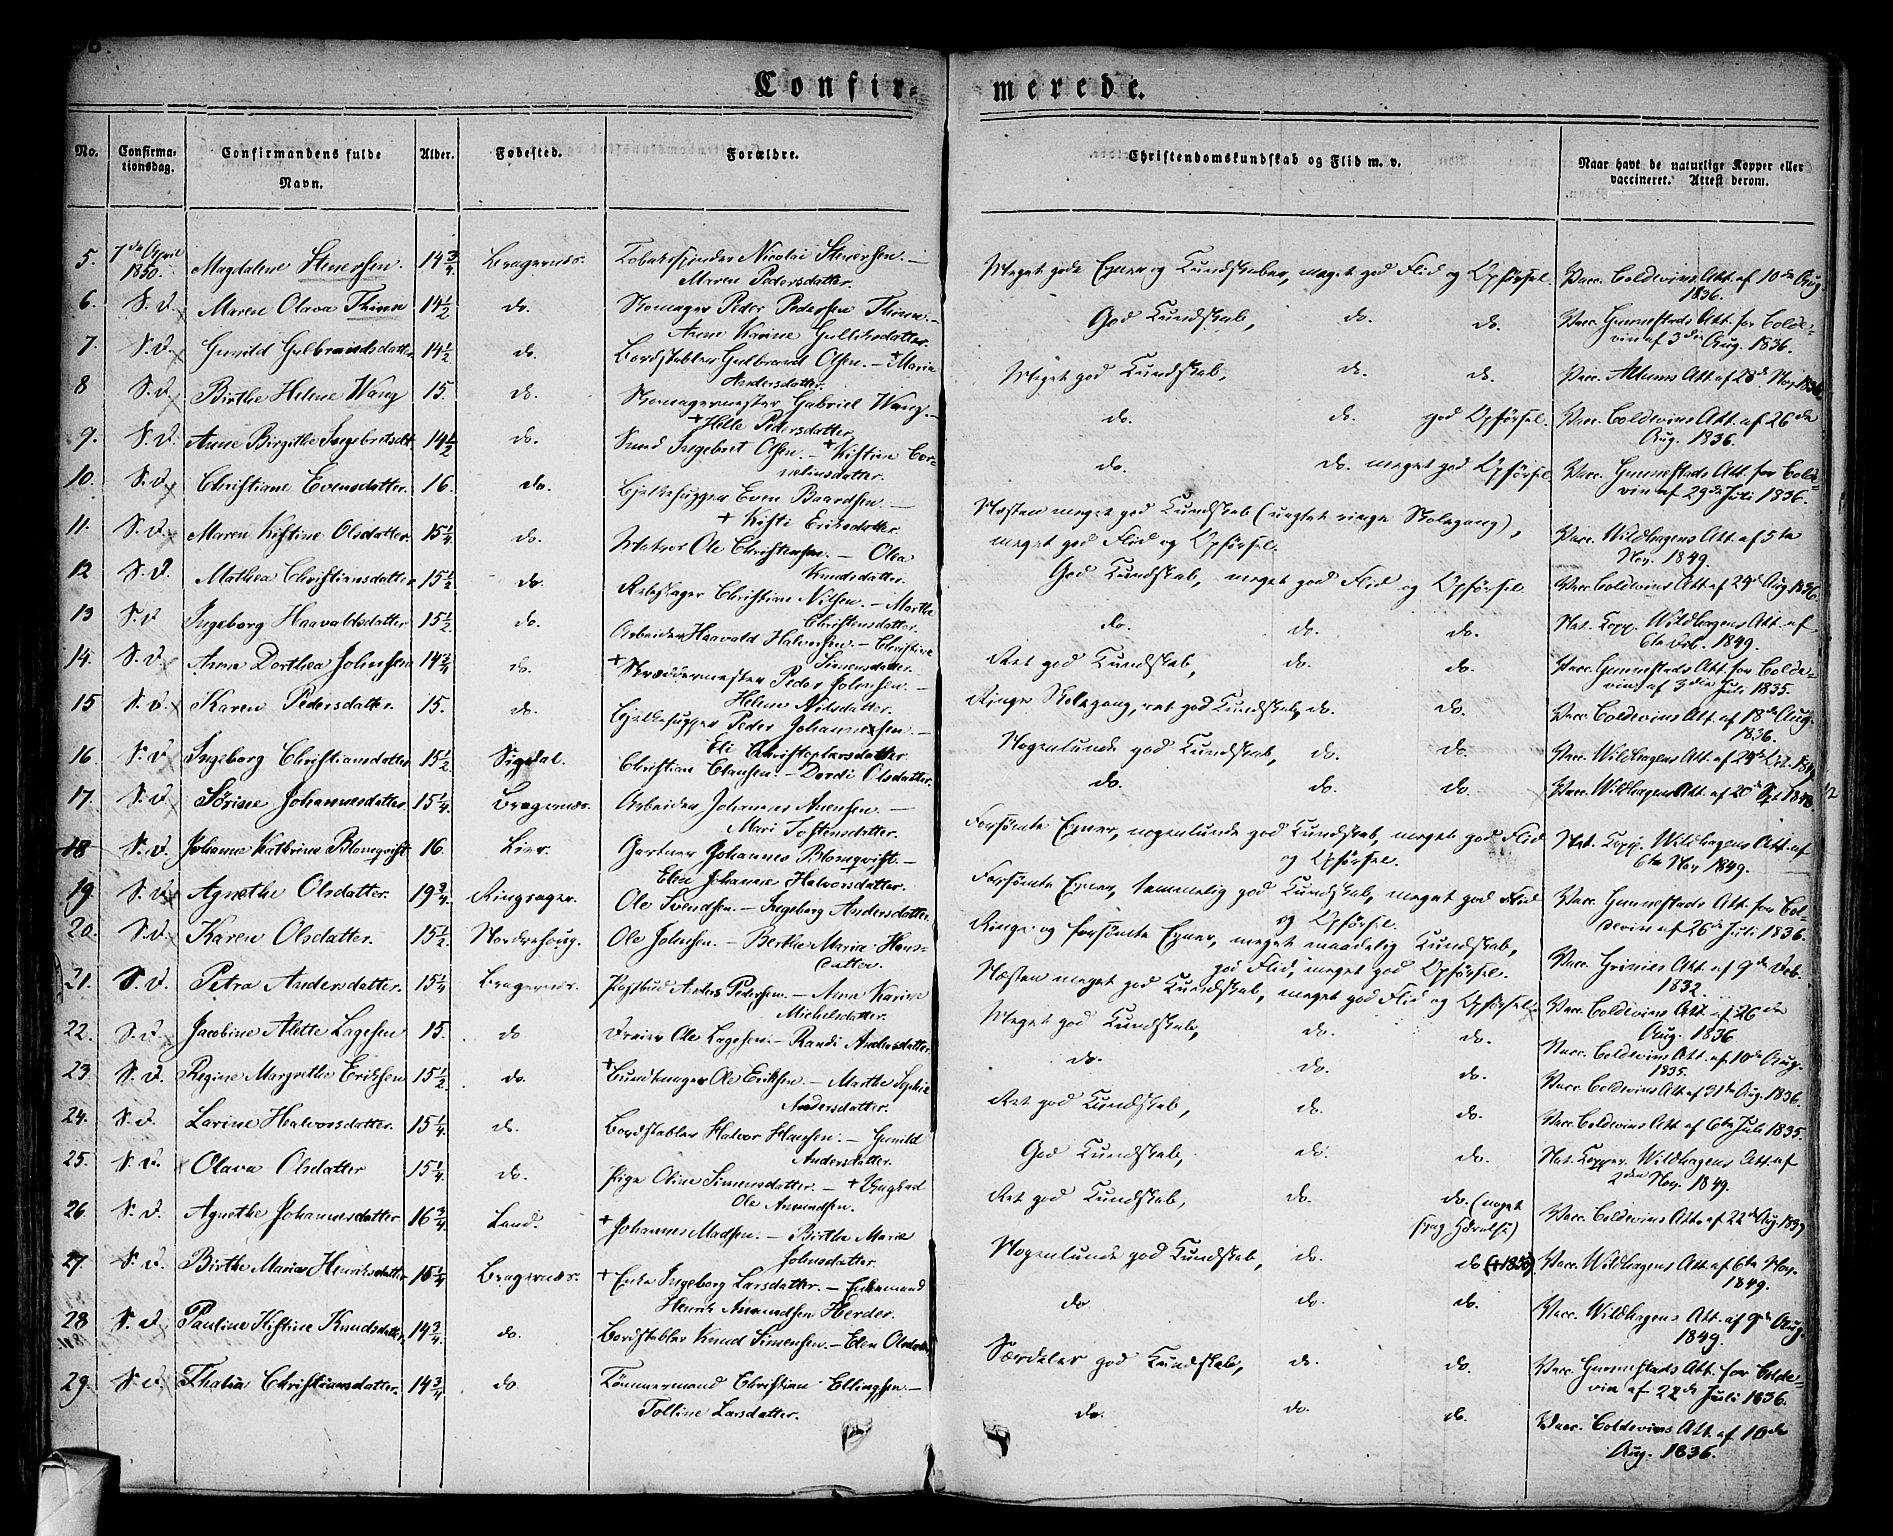 Confir-
merede.
No. Confirma-
tionsdag. Confirmandens fulde
Navn. Alder. Fødested. Forældre. Christendomskundskab og Flid m. v. Naar havt de naturlige Kopper eller
vaccineret. Attest derom.
5. 7de April
1850. Magdalene Stenersen. 14 3/4 Bragernæs. Tobaksspinder Nicolai Stenersen. —
Maren Pedersdatter. Meget gode Evner og Kundskaber, meget god Flid og Opførsel. Vacc. Coldevins Att. af 10de Aug.
1836.
6. S. D. Maren Olava Thinen 14 1/2 do. Skomager Peder Pedersen Thinen. —
Anne Karine Gullichsdatter. God Kundskab, do. do. Vacc. Gunnestads Att. for Colde-
vin af 3die Aug. 1836.
7. S. D. Gunild Gulbrandsdatter 14 1/2 do. Bordstabler Gulbrand Olsen. — + Maria
Andersdatter. Meget god Kundskab, do. do. Vacc. Altums Att. af 23de Nov. 1836
8 S. D. Birthe Helene Wang 15. do. Skomagermester Gabriel Wang. —
+ Helle Pedersdatter do. do. god Opførsel. Vacc. Coldevins Att. af 26de
Aug. 1836.
9. S. D. Anne Birgithe Ingebretsdt. 14 1/2 do. Smed Ingebret Olsen. — + Kistine Cor-
neliusdatter. do. do. meget god Opførsel Vacc. Gunnestads Att. for Colde-
vin af 29de Juli 1836.
10. S. D. Christiane Evensdatter. 16. do. Bjelkehugger Even Baardsen. —
+ Kisti Eriksdatter. Næsten meget god Kundskab (uagtet ringe Skolegang),
meget god Flid og Opførsel. Vacc. Wildhagens Att. af 5te
Nov. 1849.
11. S. D. Maren Kistine Olsdatter. 15 1/4. do. Matros Ole Christensen. — Olea
Knudsdatter. God Kundskab, meget god Flid og Opførsel. Vacc. Coldevins Att. af 24de Aug. 1836.
12 S. D. Mathea Christiansdatter 15 1/2 do. Rebslager Christian Nilsen. — Marthe
Christensdatter. do. do. do. Nat. Kopp. Wildhagens Att. af
6te Feb. 1849.
13 S. D Ingeborg Haavaldsdatter 15 1/2 do. Arbeider Haavald Halvorsen — Christine
Simensdatter. Ret god Kundskab, do. do. Vacc. Gunnestads Att. for Colde-
vin af 3die Juli 1835.
14. S. D. Anne Dorthea Johnsen 14 3/4 do. + Skræddermester Peder Johnsen. —
Helene Nilsdatter. Ringe Skolegang, ret god Kundskab, do. do. Vacc. Coldevins Att. af 18de Aug.
1836.
15 S. D. Karen Pedersdatter. 15. do. Bjelkehugger Peder Johannessen. —
Eli Christophersdatter Nogenlunde god Kundskab, do. do. Vacc. Wildhagens Att. af 24de Oct. 1849
16 S. D Ingeborg Christiansdatter 15 1/2 Sigdal. Christian Clausen. — Dordi Olsdatter. do. do. do. Vacc. Wildhagens Att. af 20de Spt 1848
17. S. D. Sörine Johannesdatter 15 1/4 Bragernæs. Arbeider Johannes Auensen —
Mari Tostensdatter. Forsømte Evner, nogenlunde god Kundskab, meget god Flid
og Opførsel. Nat. Kopp. Wildhagens Att. af
6te Nov. 1849.
18 S. D. Johanne Kathrine Blomqvist 16. Lier. Gartner Johannes Blomqvist. —
Elen Johanne Halvorsdatter. Forsømte Evner, temmelig god Kundskab, meget god Flid
og Opførsel. Vacc. Gunnestads Att. for Col-
devin af 26de Juli 1836.
19. S. D Agnethe Olsdatter. 19 3/4. Ringsager. Ole Svendsen. — Ingeborg Andersdatter. Ringe og forsømte Evner, meget maadelig Kundskab,
god Flid, meget god Opførsel. Vacc. Grinies Att. af 9de Feb.
1832.
20. S. D Karen Olsdatter. 15 1/2. Nordrehoug. Ole Johnsen. — Berthe Marie Hans-
datter. Næsten meget god Kundskab, meget god Flid og Opførsel Vacc. Coldevins Att. af 26de
Aug. 1836
21. S. D. Petra Andersdatter. 15 1/4 Bragernæs. Postbud Anders Pedersen. — Anne Karine
Michelsdatter. Meget god Kundskab, do. do. Vacc. Coldevins Att. af 10de Aug.
1835.
22. S. D. Jacobine Alette Lagesen 15. do Dreier Ole Lagesen. — Randi Andersdatter do. do. do. Vacc. Coldevins Att. af 31te Aug. 1836.
23 S. D. Regine Margrethe Eriksen 15 1/2 do. + Bundtmager Ole Eriksen. — Marthe Sophie
Andersdatter. Ret god Kundskab, do. do. Vacc. Coldevins Att. af 6te Juli 1835.
24. S. D. Larine Halvorsdatter. 15 1/4. do. Bordstabler Halvor Hansen. — Gunild
Andersdatter. God Kundskab, do. do. Nat. Kopper. Wildhagens Att. af
2den Nov. 1849.
25. S. D. Olava Olsdatter 15 1/4. do. Pige Oline Simensdatter. — + Ungkarl
Ole Amundsen. Ret god Kundskab, do. do. (meget
svag Hørelse) Vacc. Coldevins Att. af 22de Aug. 1837
26 S. D. Agnethe Johannesdatter 16 3/4 Land. + Johannes Madsen. — Birthe Marie
Johnsdatter. Nogenlunde god Kundskab, do. do (+1850). Vacc. Wildhagens Att. af 6te Nov.
1849.
27 S. D. Birthe Marie Henriksdatter 15 1/4 Bragernæs. + Enke Ingeborg Larsdatter. — Enkemand
Henrik Amundsen Herder. do. do. do. Vacc. Wildhagens Att. af 9de Aug.
1849.
28 S. D. Pauline Kistine Knudsdatter, 14 3/4 do. Bordstabler Knud Simensen. — Elen Olsdatter Særdeles god Kundskab, do. do. Vacc. Gunnestads Att. for Colde-
vin af 22de Juli 1836.
29. S. D. Thalia Christiansdatter. 14 3/4 do. Tømmermand Christian Ellingsen —
Tolline Larsdatter. do. do. do. Vacc. Coldevins Att. af 10de
Aug. 1836.